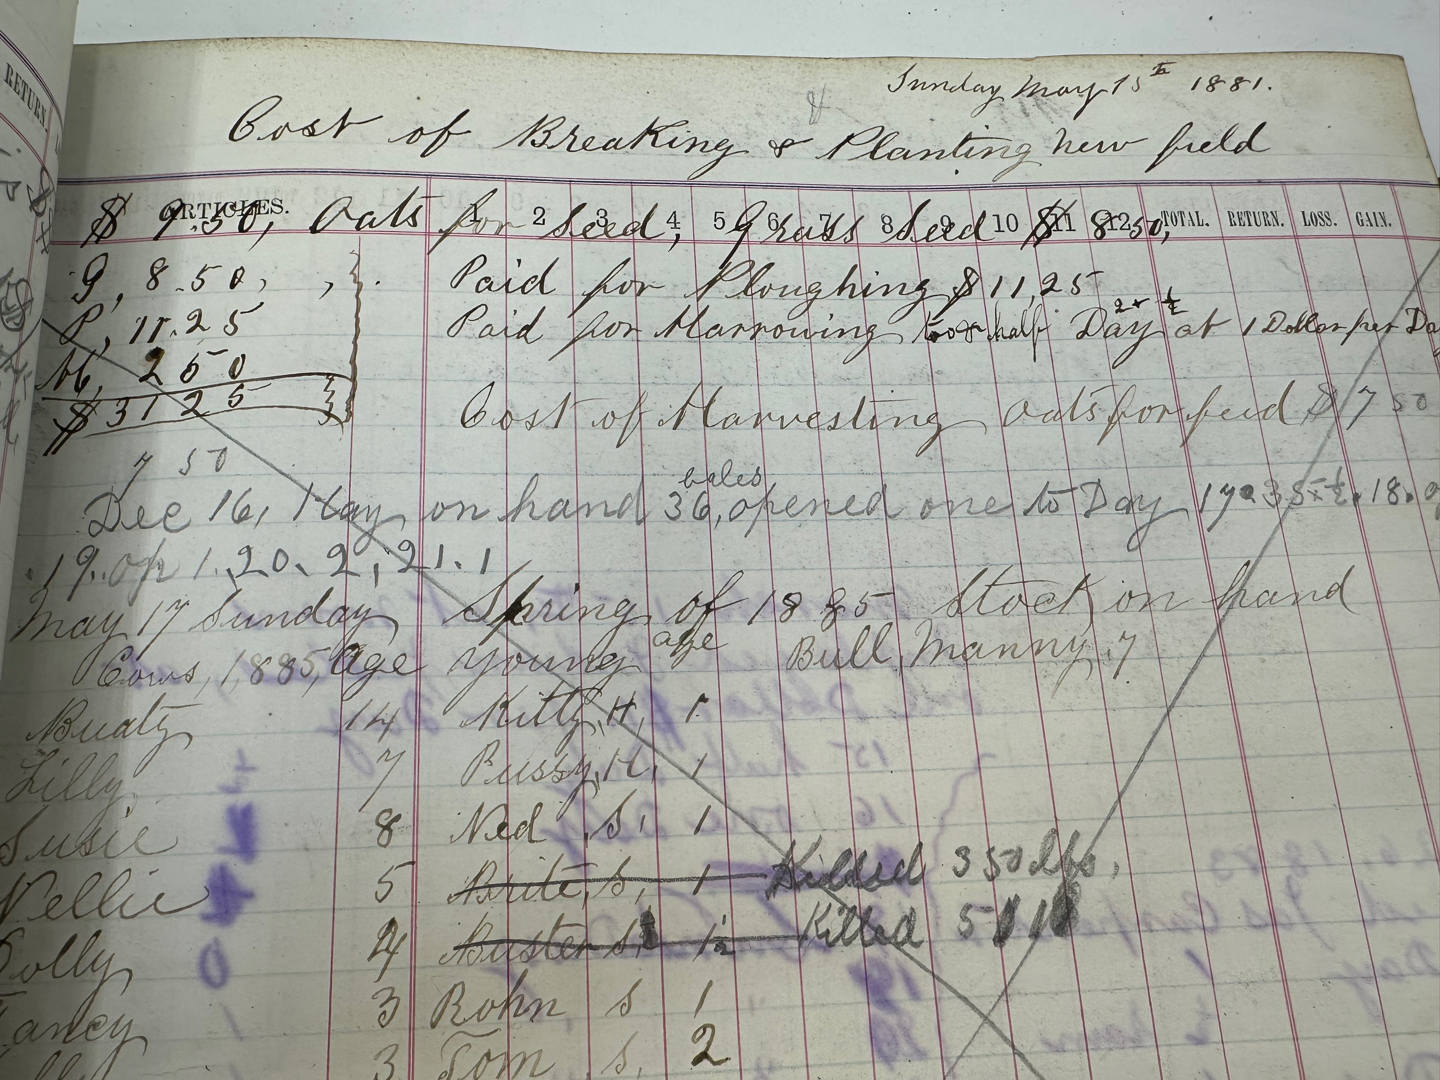 Sunday May 15th 1881.
Cost of Breaking & Planting new field
ARTICLES. 1 2 3 4 5 6 7 8 9 10 11 12 TOTAL. RETURN. LOSS. GAIN.
$ 9.50, Oats for Seed, Grass Seed $ 8.50,
G, 8.50, , . Paid for Ploughing $11,25
P, 11.25 Paid for Harrowing half Day 2 & ½ at 1 Dollar per Day
H, 2 50
$ 31 25 Cost of Harvesting oats for feed $ 7 50
7 50
Dec 16, Hay on hand 36 bales, opened one to Day 17. 18.
19. op 1. 20. 2, 21. 1
May 17 Sunday Spring of 1885 Stock on hand
Cows, 1885, Age Young age Bull, Manny, 7
Buaty 14 Kitty, H, 1
Lilly 7 Pussy, H, 1
Susie 8 Ned, S, 1
Nellie 5 Brite, S, 1 Killed 350 lbs,
olly 4 Buster S, 1½ Killed
ancy 3 Rohn, S 1
3 Tom S, 2
RETURN.